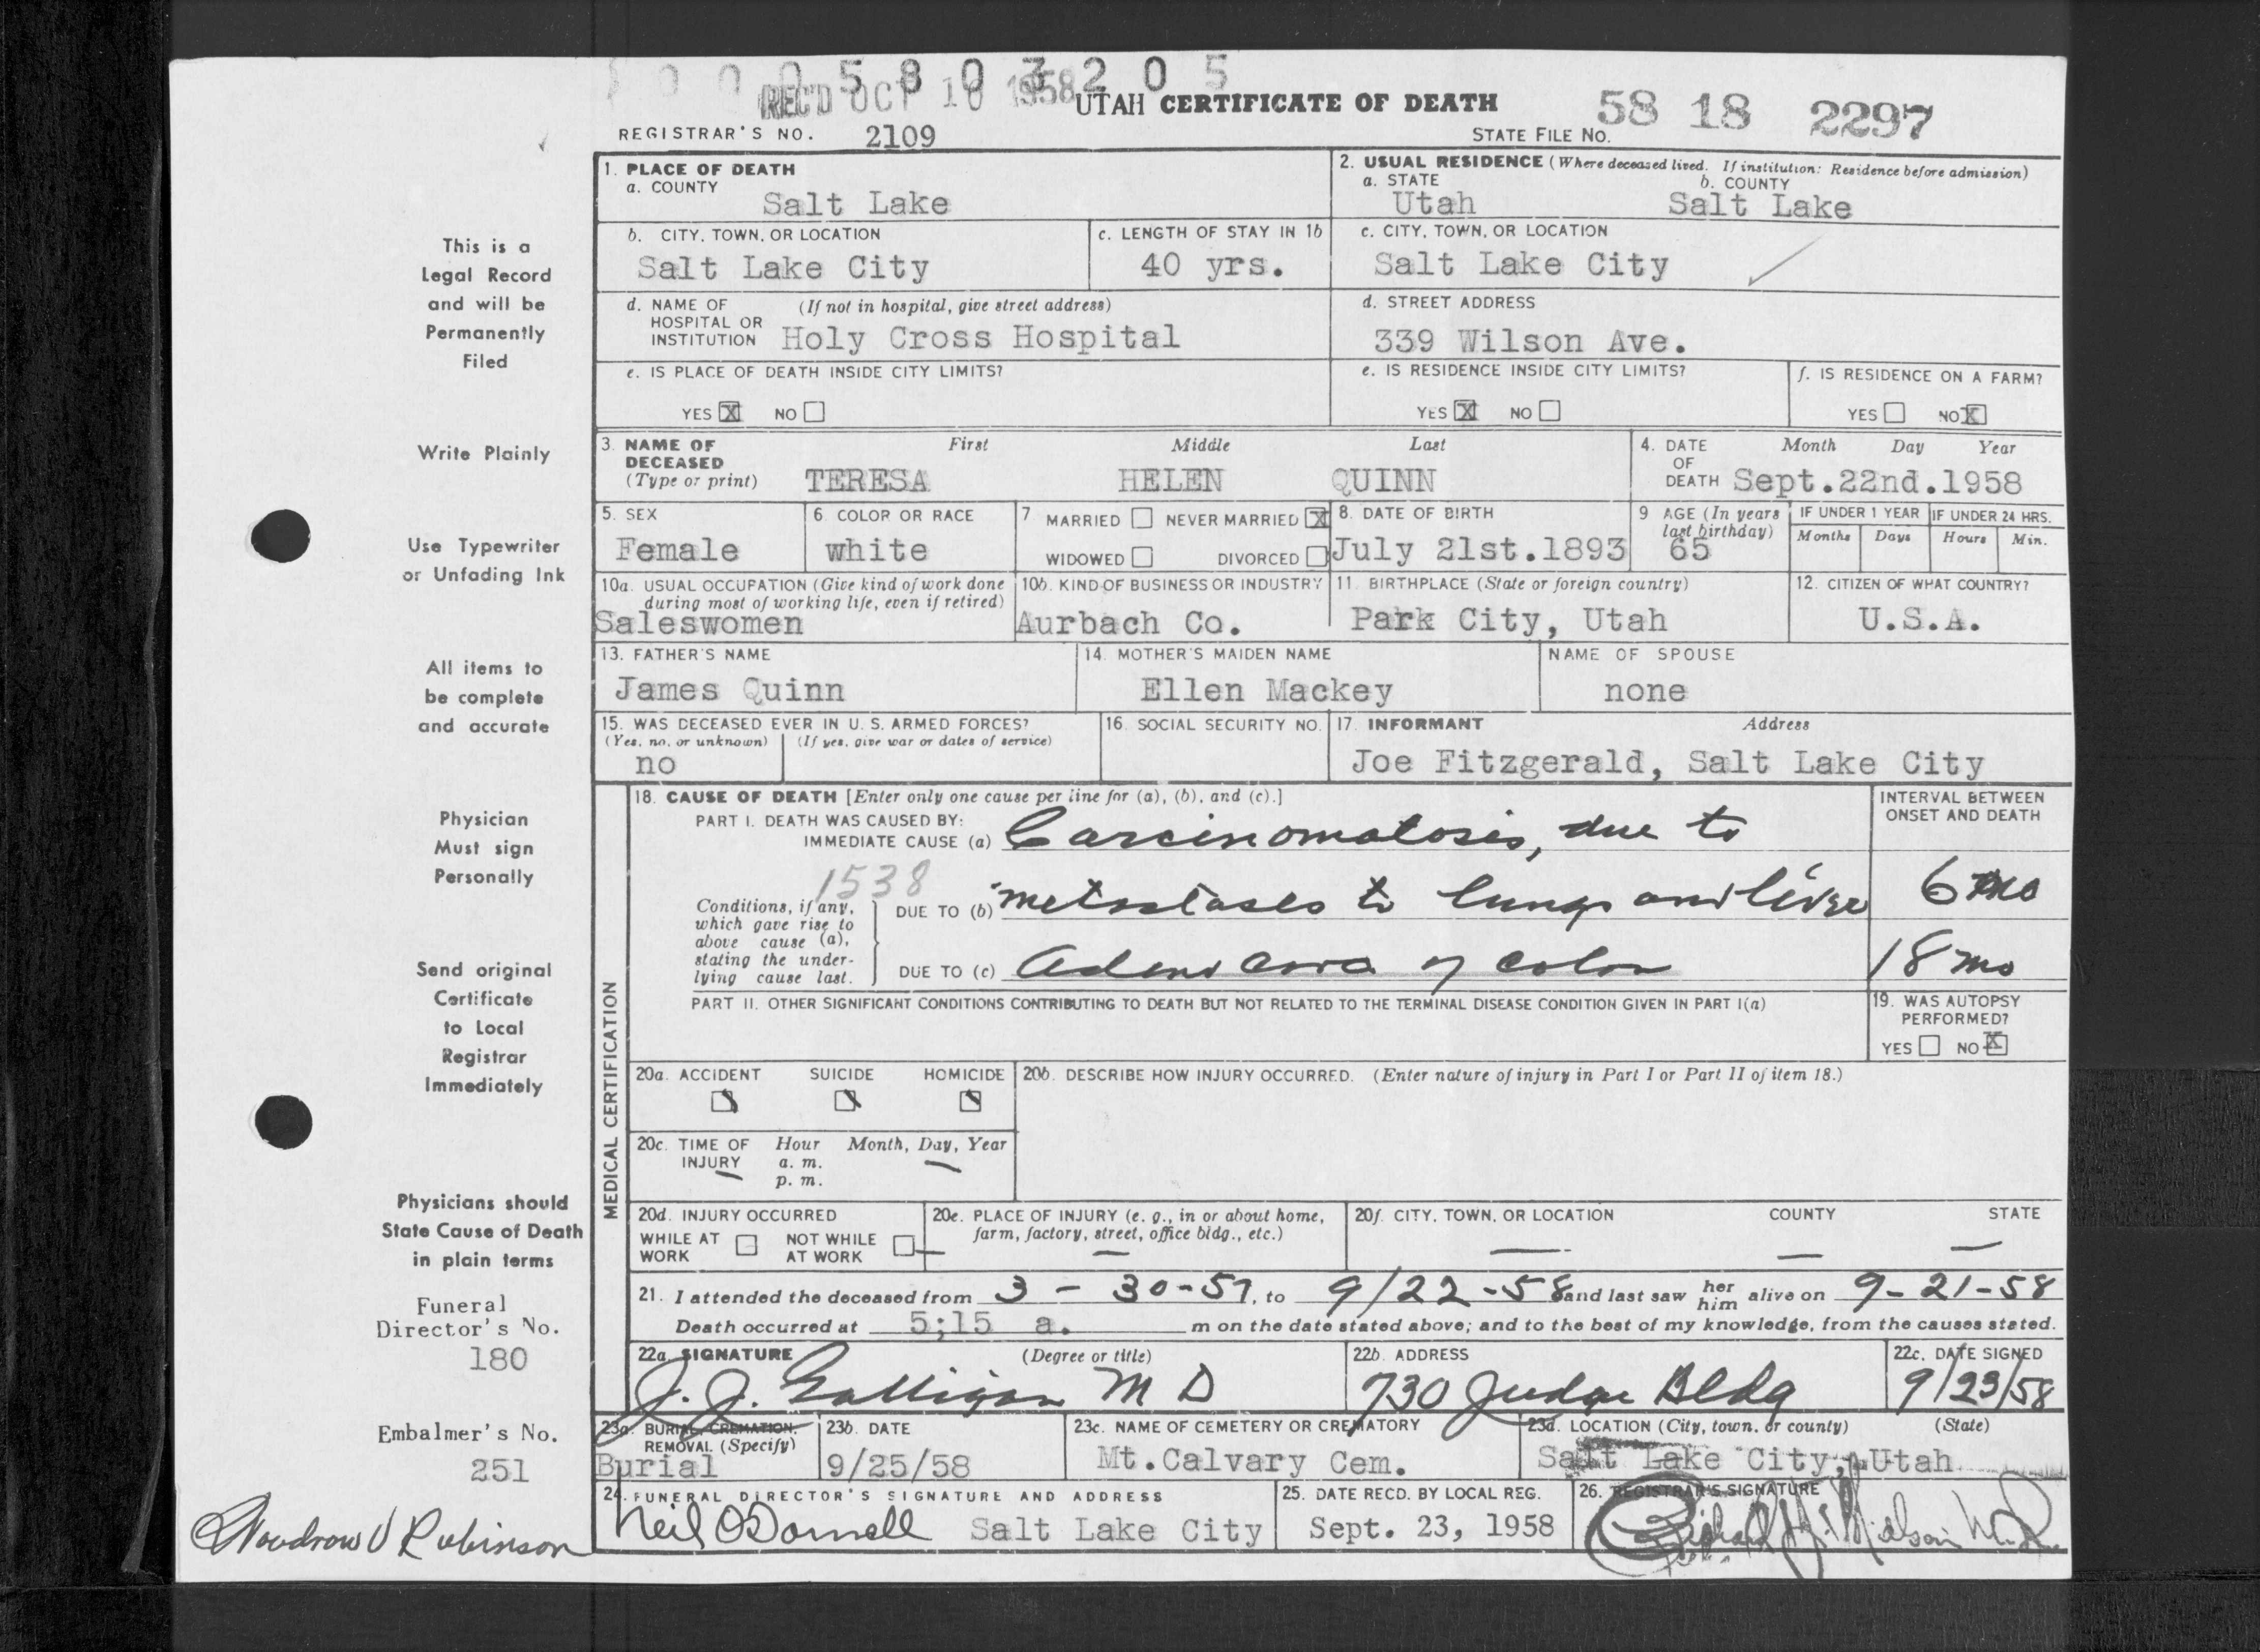 0 0 0 5 8 0 3 2 0 5
REC'D OCT 10 1958
UTAH CERTIFICATE OF DEATH
58 18 2297
REGISTRAR'S NO. 2109
STATE FILE NO.
1. PLACE OF DEATH
a. COUNTY
Salt Lake
2. USUAL RESIDENCE (Where deceased lived. If institution: Residence before admission)
a. STATE b. COUNTY
Utah Salt Lake
b. CITY, TOWN, OR LOCATION
Salt Lake City
c. LENGTH OF STAY IN 1b
40 yrs.
c. CITY, TOWN, OR LOCATION
Salt Lake City
d. NAME OF (If not in hospital, give street address)
HOSPITAL OR
INSTITUTION Holy Cross Hospital
d. STREET ADDRESS
339 Wilson Ave.
e. IS PLACE OF DEATH INSIDE CITY LIMITS?
YES X NO
e. IS RESIDENCE INSIDE CITY LIMITS?
YES X NO
f. IS RESIDENCE ON A FARM?
YES NO X
3. NAME OF First Middle Last
DECEASED
(Type or print) TERESA HELEN QUINN
4. DATE Month Day Year
OF
DEATH Sept.22nd.1958
5. SEX
Female
6 COLOR OR RACE
white
7 MARRIED NEVER MARRIED X
WIDOWED DIVORCED
8. DATE OF BIRTH
July 21st.1893
9 AGE (In years
last birthday)
65
IF UNDER 1 YEAR
Months Days
IF UNDER 24 HRS.
Hours Min.
10a. USUAL OCCUPATION (Give kind of work done
during most of working life, even if retired)
Saleswomen
10b. KIND OF BUSINESS OR INDUSTRY
Aurbach Co.
11. BIRTHPLACE (State or foreign country)
Park City, Utah
12. CITIZEN OF WHAT COUNTRY?
U.S.A.
13. FATHER'S NAME
James Quinn
14. MOTHER'S MAIDEN NAME
Ellen Mackey
NAME OF SPOUSE
none
15. WAS DECEASED EVER IN U. S. ARMED FORCES?
(Yes, no, or unknown) (If yes, give war or dates of service)
no
16. SOCIAL SECURITY NO.
17. INFORMANT Address
Joe Fitzgerald, Salt Lake City
MEDICAL CERTIFICATION
18. CAUSE OF DEATH [Enter only one cause per line for (a), (b), and (c).]
PART I. DEATH WAS CAUSED BY:
IMMEDIATE CAUSE (a) Carcinomatosis, due to
INTERVAL BETWEEN
ONSET AND DEATH
1538
Conditions, if any,
which gave rise to
above cause (a),
stating the under-
lying cause last.
DUE TO (b) metastases to lungs and liver 6 mo
DUE TO (c) Adeno carca of colon 18 mo
PART II. OTHER SIGNIFICANT CONDITIONS CONTRIBUTING TO DEATH BUT NOT RELATED TO THE TERMINAL DISEASE CONDITION GIVEN IN PART I(a)
19. WAS AUTOPSY
PERFORMED?
YES NO X
20a. ACCIDENT SUICIDE HOMICIDE
20b. DESCRIBE HOW INJURY OCCURRED. (Enter nature of injury in Part I or Part II of item 18.)
20c. TIME OF Hour Month, Day, Year
INJURY a. m.
p. m.
20d. INJURY OCCURRED
WHILE AT NOT WHILE
WORK AT WORK
20e. PLACE OF INJURY (e. g., in or about home,
farm, factory, street, office bldg., etc.)
20f. CITY, TOWN, OR LOCATION COUNTY STATE
21. I attended the deceased from 3 - 30-57, to 9/22-58 and last saw her him alive on 9-21-58
Death occurred at 5;15 a. m on the date stated above; and to the best of my knowledge, from the causes stated.
22a. SIGNATURE (Degree or title)
J. J. Galligan M D
22b. ADDRESS
730 Judge Bldg
22c. DATE SIGNED
9/23/58
23a. BURIAL, CREMATION,
REMOVAL (Specify)
Burial
23b. DATE
9/25/58
23c. NAME OF CEMETERY OR CREMATORY
Mt.Calvary Cem.
23d. LOCATION (City, town, or county) (State)
Salt Lake City, Utah
24. FUNERAL DIRECTOR'S SIGNATURE AND ADDRESS
Neil O'Donnell Salt Lake City
25. DATE RECD. BY LOCAL REG.
Sept. 23, 1958
26. REGISTRAR'S SIGNATURE
This is a
Legal Record
and will be
Permanently
Filed
Write Plainly
Use Typewriter
or Unfading Ink
All items to
be complete
and accurate
Physician
Must sign
Personally
Send original
Certificate
to Local
Registrar
Immediately
Physicians should
State Cause of Death
in plain terms
Funeral
Director's No.
180
Embalmer's No.
251
Woodrow V Rubinson